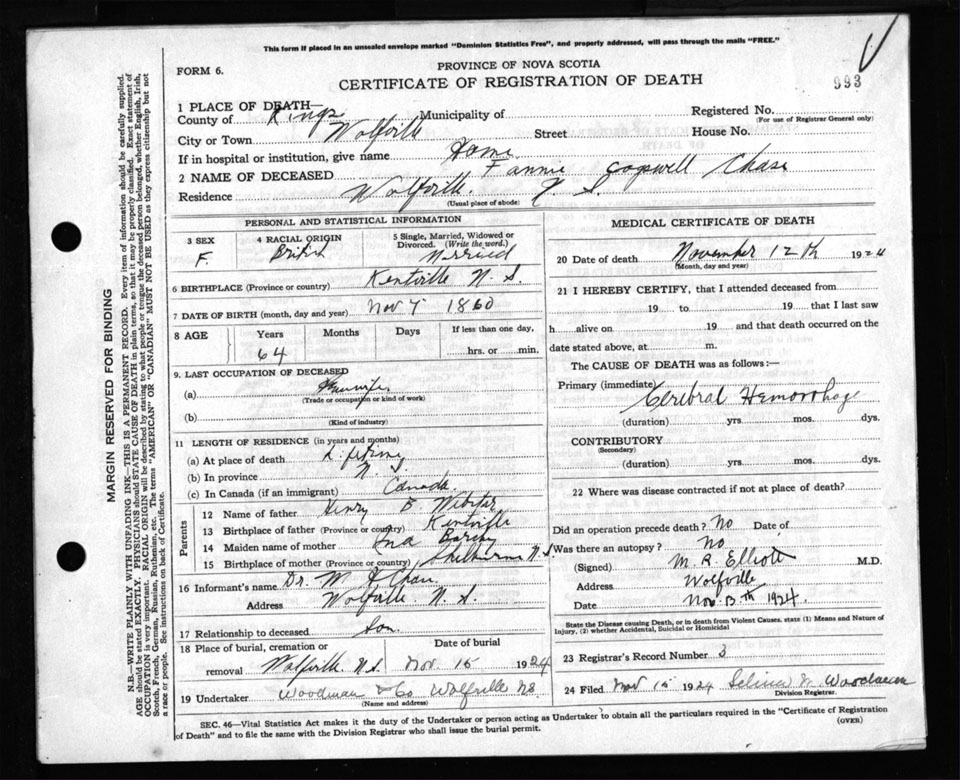 This form if placed in an unsealed envelope marked "Dominion Statistics Free", and properly addressed, will pass through the mails "FREE."
FORM 6.
PROVINCE OF NOVA SCOTIA
CERTIFICATE OF REGISTRATION OF DEATH
993
1 PLACE OF DEATH—
County of Kings Municipality of Registered No.
(For use of Registrar General only)
City or Town Wolfville Street House No.
If in hospital or institution, give name Home
2 NAME OF DECEASED Fannie Cogswell Chase
Residence Wolfville. N. S.
(Usual place of abode)
PERSONAL AND STATISTICAL INFORMATION
3 SEX 4 RACIAL ORIGIN 5 Single, Married, Widowed or Divorced. (Write the word.)
F. British Married
6 BIRTHPLACE (Province or country) Kentville N. S.
7 DATE OF BIRTH (month, day and year) Nov 7 1860
8 AGE Years Months Days If less than one day,
64 hrs. or min.
9. LAST OCCUPATION OF DECEASED
(a) Housewife
(Trade or occupation or kind of work)
(b)
(Kind of industry)
11 LENGTH OF RESIDENCE (in years and months)
(a) At place of death Lifetime
(b) In province N. S.
(c) In Canada (if an immigrant) Canada.
Parents
12 Name of father Henry B. Webster
13 Birthplace of father (Province or country) Kentville
14 Maiden name of mother Ina
15 Birthplace of mother (Province or country) Shelburne N.S.
16 Informant's name Dr. W. Chase
Address Wolfville. N. S.
17 Relationship to deceased Son
18 Place of burial, cremation or removal Date of burial
Wolfville N.S. Nov. 15 1924
19 Undertaker Woodman & Co Wolfville N.S.
(Name and address)
MEDICAL CERTIFICATE OF DEATH
20 Date of death November 12th 1924
(Month, day and year)
21 I HEREBY CERTIFY, that I attended deceased from
19 to 19 that I last saw
h alive on 19 and that death occurred on the
date stated above, at m.
The CAUSE OF DEATH was as follows:—
Primary (immediate) Cerebral Hemorrhage
(duration) yrs. mos. dys.
CONTRIBUTORY
(Secondary)
(duration) yrs. mos. dys.
22 Where was disease contracted if not at place of death?
Did an operation precede death? No Date of
Was there an autopsy? No
(Signed) M. R. Elliott M.D.
Address Wolfville
Date Nov. 13th 1924.
State the Disease causing Death, or in death from Violent Causes, state (1) Means and Nature of
Injury, (2) whether Accidental, Suicidal or Homicidal
23 Registrar's Record Number 3
24 Filed Nov 15 1924 Woodman
Division Registrar.
SEC. 46—Vital Statistics Act makes it the duty of the Undertaker or person acting as Undertaker to obtain all the particulars required in the "Certificate of Registration
of Death" and to file the same with the Division Registrar who shall issue the burial permit.
(OVER)
MARGIN RESERVED FOR BINDING
N.B.—WRITE PLAINLY WITH UNFADING INK—THIS IS A PERMANENT RECORD. Every item of information should be carefully supplied.
AGE should be stated EXACTLY. PHYSICIANS should STATE CAUSE OF DEATH in plain terms, so that it may be properly classified. Exact statement of
OCCUPATION is very important. RACIAL ORIGIN will be described by stating to what people or tongue the deceased person belonged, whether English, Irish,
Scotch, French, German, Russian, Ruthenian, etc. The terms "AMERICAN" OR "CANADIAN" MUST NOT BE USED as they express citizenship but not
a race or people. See instructions on back of Certificate.